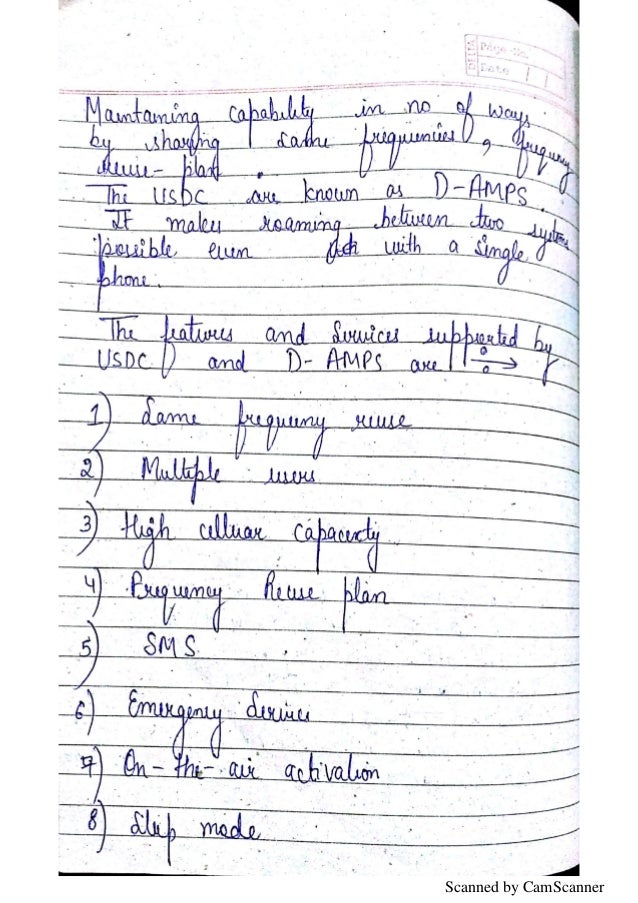 Page No.
Date
Maintaining capability in no of ways
by sharing same frequencies, frequency
reuse-plan.
The USDC are known as D-AMPS.
It makes roaming between two systems
possible even with a single
phone.
The features and Services supported by
USDC and D-AMPS are :→
1) Same frequency reuse
2) Multiple users
3) High celluar capacity
4) Frequency Reuse plan
5) SMS
6) Emergency Service
7) On-the-air activation
8) Sleep mode
Scanned by CamScanner